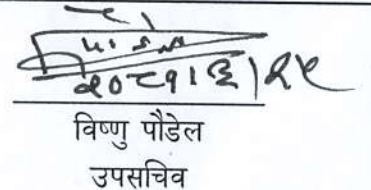 २०८१।६।२५
विष्णु पौडेल
उपसचिव